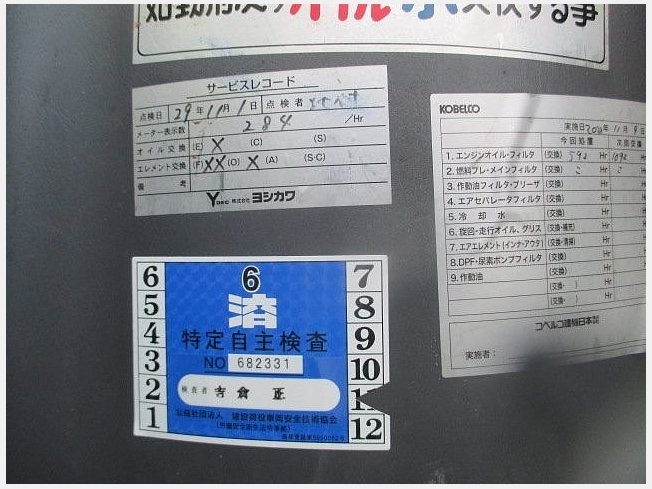 始動前必ずオイル・水交換する事
サービスレコード
点検日 29年 11月 1日 点検者
メーター表示数 284 /Hr
オイル交換 (E) X (C) (S)
エレメント交換 (F) XX (O) X (A) (S·C)
備考
YDEC 株式会社 ヨシカワ
KOBELCO
実施日 年 11月 9日
今回処置 次回交換
1. エンジンオイル・フィルタ (交換) 592 Hr 1092 Hr
2. 燃料プレ・メインフィルタ (交換) 〃 Hr 〃
3. 作動油フィルタ・ブリーザ (交換) Hr Hr
4. エアセパレータフィルタ (交換) Hr Hr
5. 冷却水 (交換) Hr Hr
6. 旋回・走行オイル、グリス (交換・補充) Hr Hr
7. エアエレメント(インナ・アウタ) (交換・清掃) Hr Hr
8. DPF・尿素ポンプフィルタ (交換) Hr Hr
9. 作動油 (交換) Hr Hr
(交換・ ) Hr Hr
(交換・ ) Hr Hr
コベルコ建機日本株式会社
実施者：
6 6 7
5 溶 8
4 特定自主検査 9
3 NO 682331 10
2 検査者 吉倉 正 11
1 公益社団法人 建設荷役車両安全技術協会 12
(労働安全衛生法令準拠)